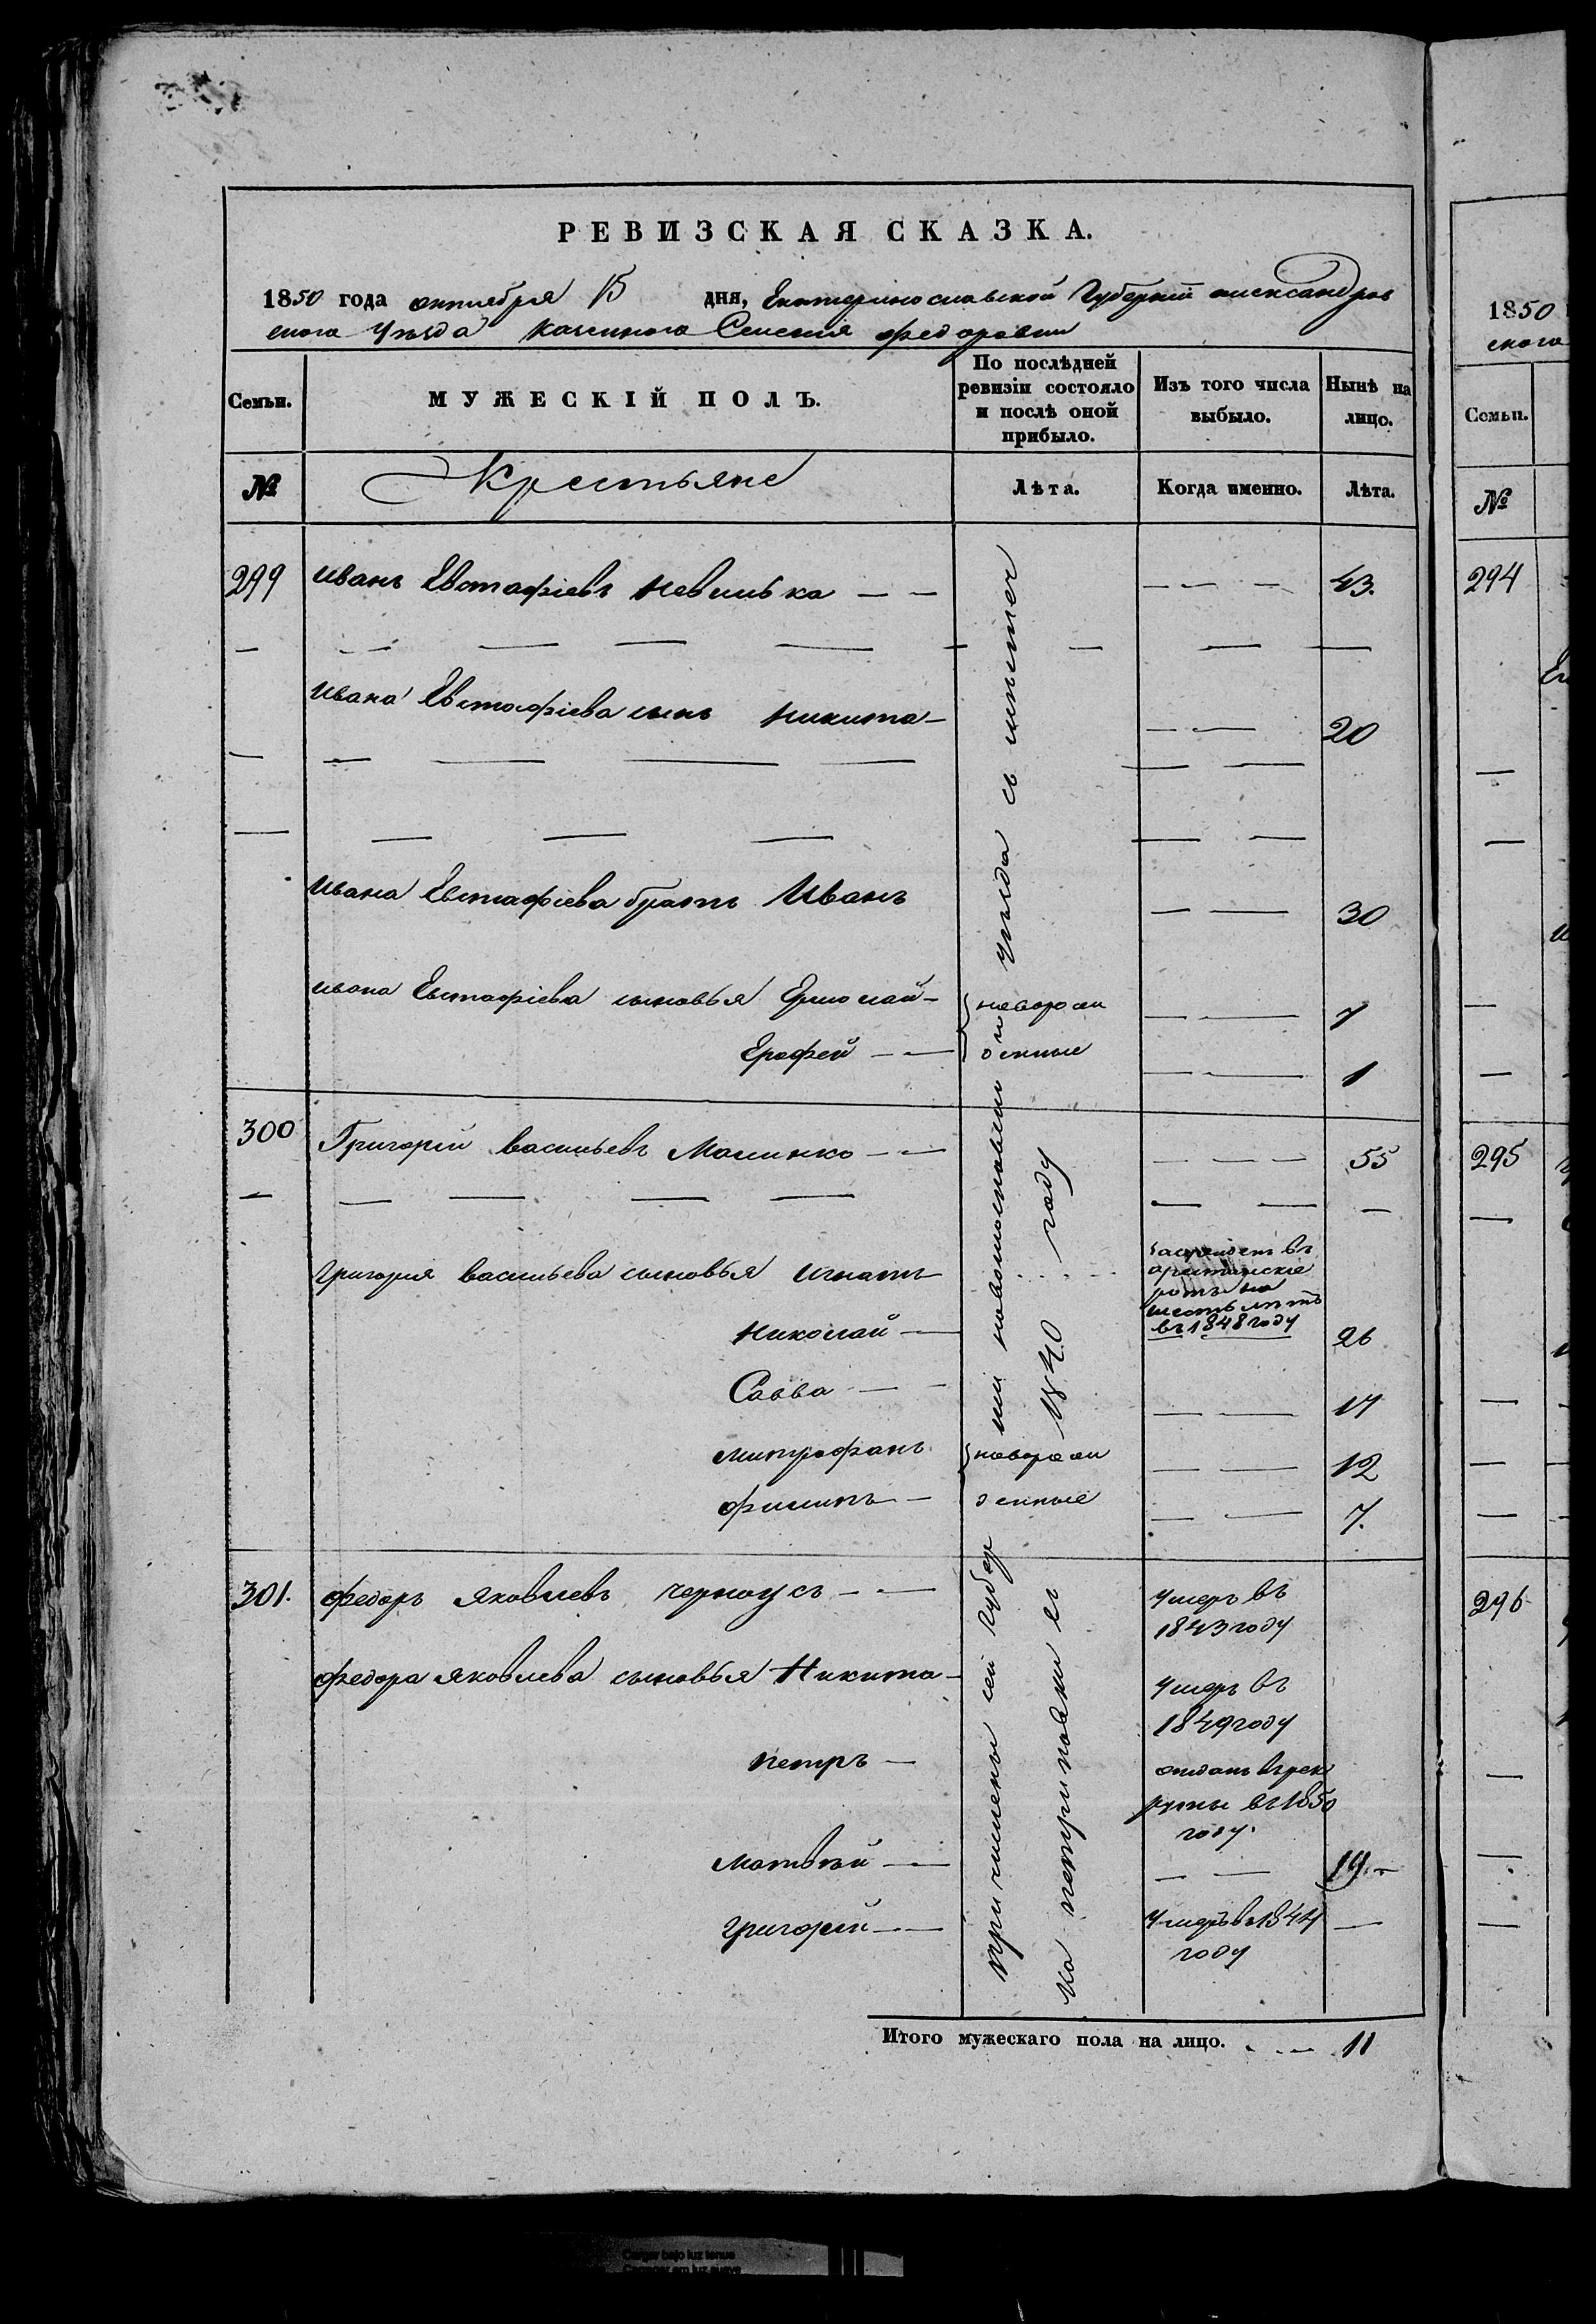 РЕВИЗСКАЯ СКАЗКА.
1850 года октября 15 дня, Екатеринославской Губерніи александров
скога Уѣзда казеннога Селенія федоровки
Семьи.
МУЖЕСКІЙ ПОЛЪ.
По послѣдней
ревизіи состояло
и послѣ оной
прибыло.
Изъ того числа
выбыло.
Нынѣ на
лицо.
№
Крестьяне
Лѣта.
Когда именно.
Лѣта.
299 Иванъ Евстафіевъ — — — — — 43.
Ивана Евстафіева сынъ Никита — — — 20
Ивана Евстафіева братъ Иванъ — — 30
Ивана Евстафіева сыновья Ермолай — новорож — — 7
Ерофей — — денные — — 1
300 Григорій васильевъ Малинко — — — — — 55
Григорія васильева сыновья Игнатъ
въ
арестанскіе
роты на
шесть лѣтъ
въ 1848 году
Николай — 26
Савва — — — — 17
митрофанъ новорож — — 12
филипъ — денные — — 7.
301. федоръ яковлевъ черноусъ — — умеръ въ
1843 году
федора яковлева сыновья Никита — умеръ въ
1849 году
петръ — отданъ врек
руты въ 1850
году.
матвѣй — — — 19. —
григорій — — умеръ в 1844 —
году
причислены сей губер
ніи новомосковскаго уѣзда съ
на петриковки въ
1840 году
Итого мужескаго пола на лицо. . . — 11
1850
скога
Семьи.
№
294
295
296